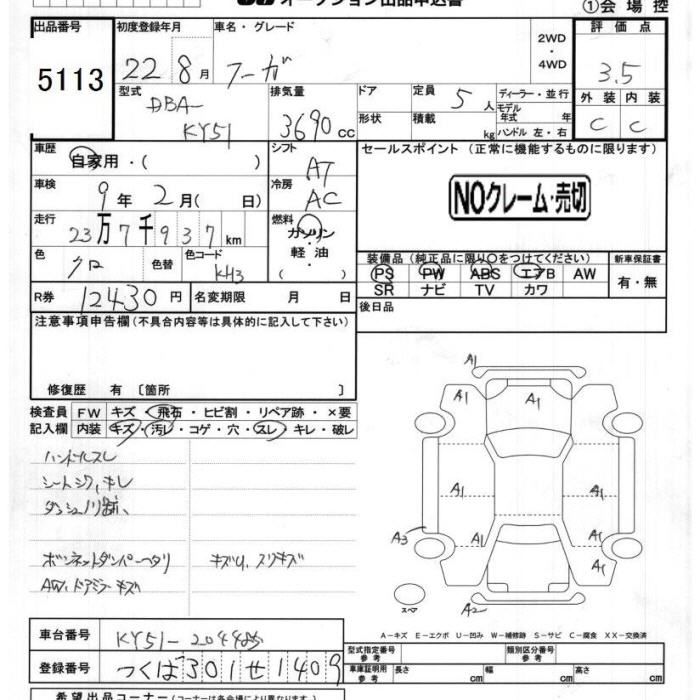 オークション出品申込書
①会場控
出品番号 初度登録年月 車名・グレード 2WD ・ 4WD 評価点
5113 22 8月 フーガ 3.5
型式 DBA- KY51 排気量 3690 cc ドア 定員 5人 ディーラー・並行 外装 内装
形状 積載 kg モデル年式 年 ハンドル 左・右 C C
車歴 自家用・( ) シフト AT セールスポイント (正常に機能するものに限ります)
車検 9年 2月( 日) 冷房 AC
NOクレーム・売切
走行 23万7千937km 燃料 ガソリン・軽油・( )
色 クロ 色替 色コード KH3 装備品 (純正品に限り○をつけてください) 新車保証書
PS PW ABS エアB AW 有・無
SR ナビ TV カワ
R券 12430円 名変期限 月 日 後日品
注意事項申告欄 (不具合内容等は具体的に記入して下さい)
修復歴 有 [箇所 ]
検査員 FW キズ・飛石・ヒビ割・リペア跡・×要
記入欄 内装 キズ・汚レ・コゲ・穴・スレ・キレ・破レ
ハンドルスレ
シートシワ、キレ
ダッシュノリ跡、
ボンネットダンパーヘタリ キズU、スリキズ
AW、ドアミラーキズ
A1
A1
A1 A1
A3 A1 A1
A1
スペア A2
A-キズ E-エクボ U-凹み W-補修跡 S-サビ C-腐食 XX-交換済
車台番号 KY51-
型式指定番号 参考 類別区分番号 参考
登録番号 つくば301せ1409
車庫証明用 参考 長さ cm 幅 cm 高さ cm
希望出品コーナー (コーナーは各会場により異なります)